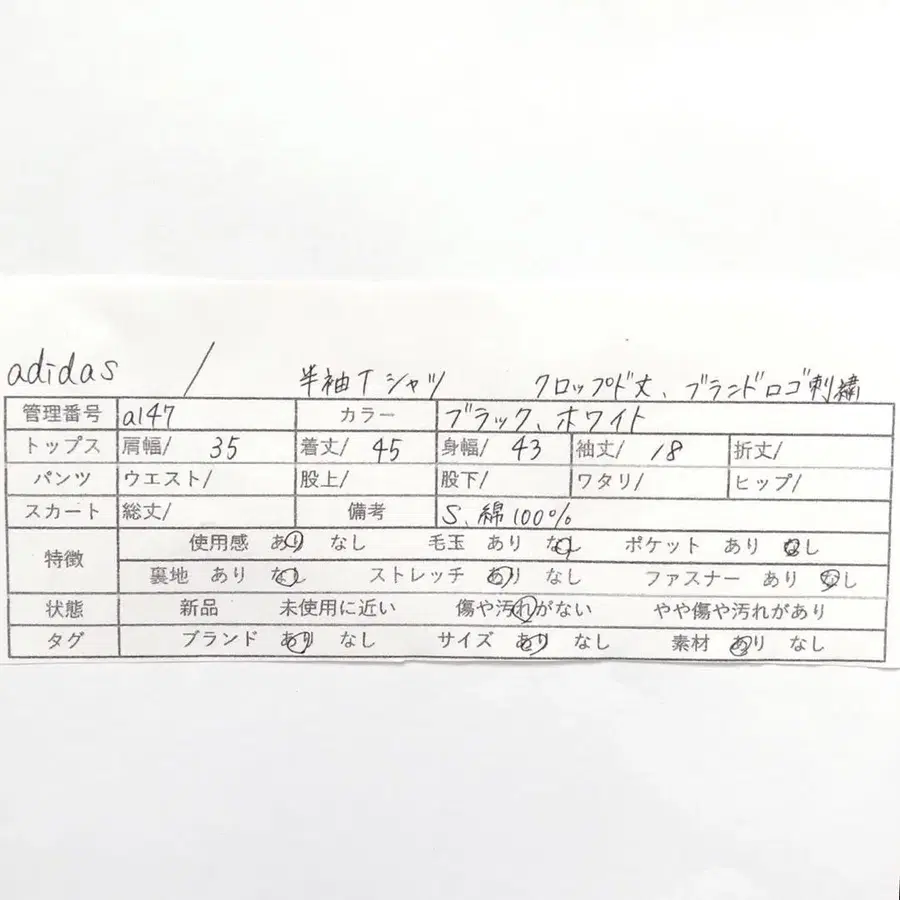 adidas / 半袖Tシャツ クロップド丈、ブランドロゴ刺繍
管理番号 a147 カラー ブラック、ホワイト
トップス 肩幅/ 35 着丈/ 45 身幅/ 43 袖丈/ 18 折丈/
パンツ ウエスト/ 股上/ 股下/ ワタリ/ ヒップ/
スカート 総丈/ 備考 S、綿100%
特徴 使用感 あり なし 毛玉 あり なし ポケット あり なし
裏地 あり なし ストレッチ あり なし ファスナー あり なし
状態 新品 未使用に近い 傷や汚れがない やや傷や汚れがあり
タグ ブランド あり なし サイズ あり なし 素材 あり なし